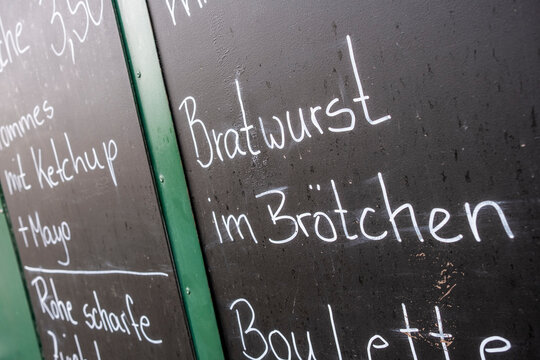 che 3,50
ommes
mit Ketchup
+ Mayo
Rohe scharfe
Bratwurst
im Brötchen
Boulette